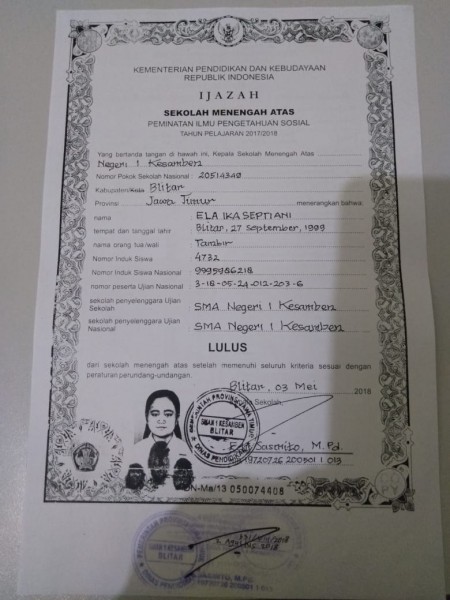 KEMENTERIAN PENDIDIKAN DAN KEBUDAYAAN
REPUBLIK INDONESIA
IJAZAH
SEKOLAH MENENGAH ATAS
PEMINATAN ILMU PENGETAHUAN SOSIAL
TAHUN PELAJARAN 2017/2018
Yang bertanda tangan di bawah ini, Kepala Sekolah Menengah Atas
Negeri 1 Kesamben
Nomor Pokok Sekolah Nasional : 20514340
Kabupaten/Kota Blitar
Provinsi Jawa Timur menerangkan bahwa:
nama : ELA IKA SEPTIANI
tempat dan tanggal lahir : Blitar, 27 September, 1999
nama orang tua/wali : Tambir
Nomor Induk Siswa : 4732
Nomor Induk Siswa Nasional : 9995986218
nomor peserta Ujian Nasional : 3-18-05-24-012-203-6
sekolah penyelenggara Ujian Sekolah : SMA Negeri 1 Kesamben
sekolah penyelenggara Ujian Nasional : SMA Negeri 1 Kesamben
LULUS
dari sekolah menengah atas setelah memenuhi seluruh kriteria sesuai dengan
peraturan perundang-undangan.
Blitar, 03 Mei 2018
Sekolah,
PEMERINTAH PROVINSI JAWA TIMUR
SMAN 1 KESAMBEN
BLITAR
DINAS PENDIDIKAN
Sasmito, M.Pd.
19720726 200501 1 013
DN-Ma/13 050074408
SMAN 1 KESAMBEN
BLITAR